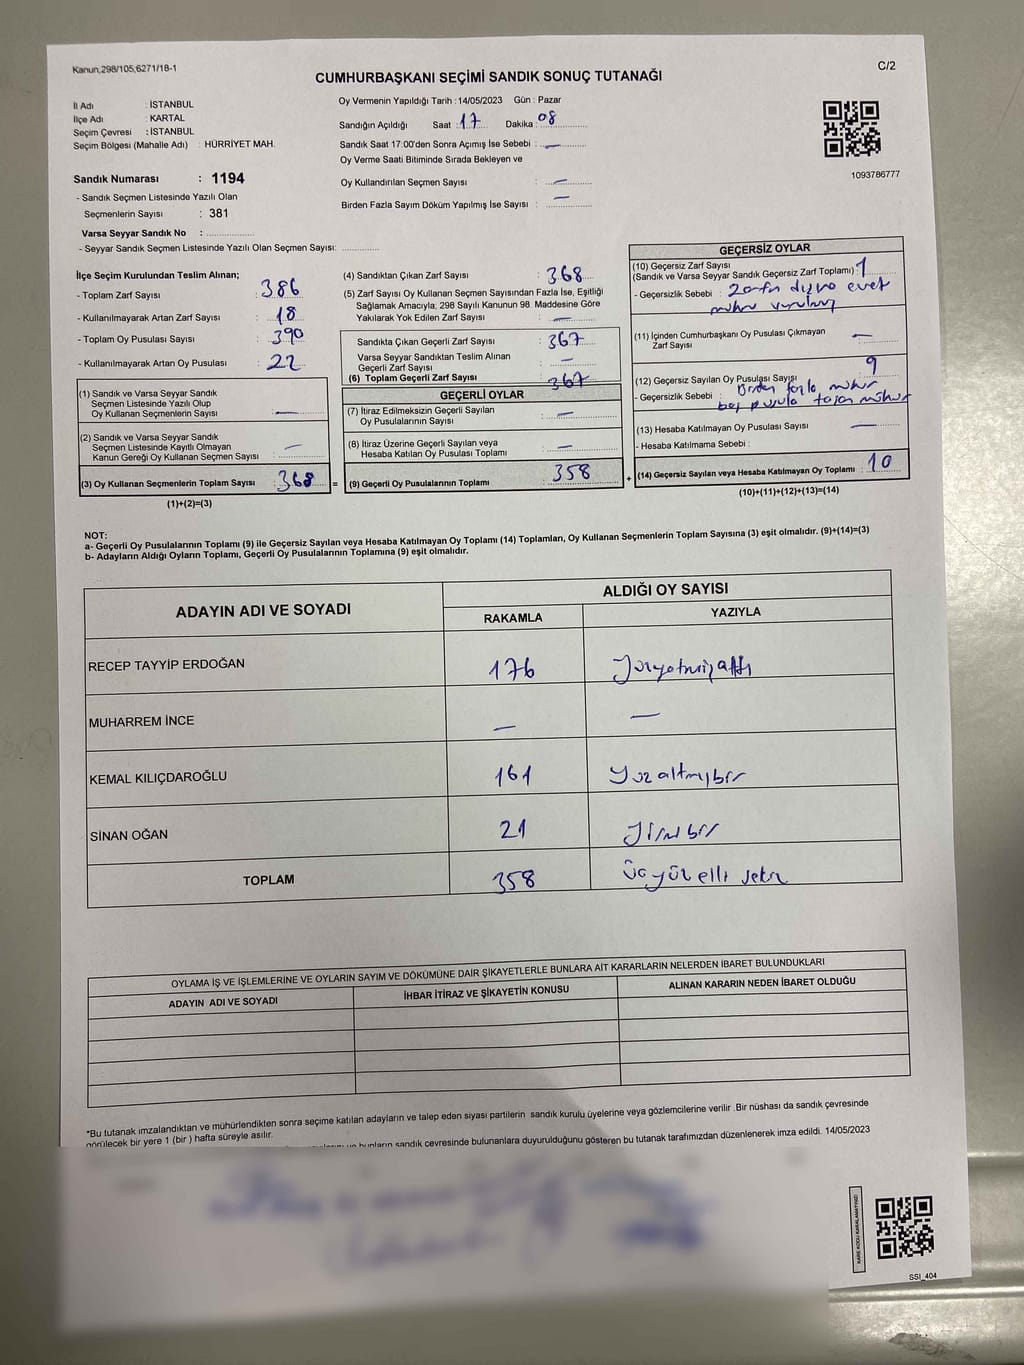 Kanun,298/105,6271/18-1
C/2
CUMHURBAŞKANI SEÇİMİ SANDIK SONUÇ TUTANAĞI
İl Adı : İSTANBUL
İlçe Adı : KARTAL
Seçim Çevresi : İSTANBUL
Seçim Bölgesi (Mahalle Adı) : HÜRRİYET MAH.
Sandık Numarası : 1194
- Sandık Seçmen Listesinde Yazılı Olan
Seçmenlerin Sayısı : 381
Varsa Seyyar Sandık No : ..............
- Seyyar Sandık Seçmen Listesinde Yazılı Olan Seçmen Sayısı: ..............
Oy Vermenin Yapıldığı Tarih : 14/05/2023 Gün : Pazar
Sandığın Açıldığı Saat : 17 Dakika : 08
Sandık Saat 17:00'den Sonra Açımış İse Sebebi : —
Oy Verme Saati Bitiminde Sırada Bekleyen ve
Oy Kullandırılan Seçmen Sayısı : —
Birden Fazla Sayım Döküm Yapılmış İse Sayısı : —
1093786777
İlçe Seçim Kurulundan Teslim Alınan;
- Toplam Zarf Sayısı : 386
- Kullanılmayarak Artan Zarf Sayısı : 18
- Toplam Oy Pusulası Sayısı : 390
- Kullanılmayarak Artan Oy Pusulası : 22
(1) Sandık ve Varsa Seyyar Sandık
Seçmen Listesinde Yazılı Olup
Oy Kullanan Seçmenlerin Sayısı : —
(2) Sandık ve Varsa Seyyar Sandık
Seçmen Listesinde Kayıtlı Olmayan
Kanun Gereği Oy Kullanan Seçmen Sayısı : —
(3) Oy Kullanan Seçmenlerin Toplam Sayısı : 368
(1)+(2)=(3)
=
(4) Sandıktan Çıkan Zarf Sayısı : 368
(5) Zarf Sayısı Oy Kullanan Seçmen Sayısından Fazla İse, Eşitliği
Sağlamak Amacıyla, 298 Sayılı Kanunun 98. Maddesine Göre
Yakılarak Yok Edilen Zarf Sayısı : —
Sandıkta Çıkan Geçerli Zarf Sayısı : 367
Varsa Seyyar Sandıktan Teslim Alınan
Geçerli Zarf Sayısı : —
(6) Toplam Geçerli Zarf Sayısı : 367
GEÇERLİ OYLAR
(7) İtiraz Edilmeksizin Geçerli Sayılan
Oy Pusulalarının Sayısı : —
(8) İtiraz Üzerine Geçerli Sayılan veya
Hesaba Katılan Oy Pusulası Toplamı : —
(9) Geçerli Oy Pusulalarının Toplamı : 358
+
GEÇERSİZ OYLAR
(10) Geçersiz Zarf Sayısı
(Sandık ve Varsa Seyyar Sandık Geçersiz Zarf Toplamı) : 1
- Geçersizlik Sebebi : Zarfın dışına evet
mührü
(11) İçinden Cumhurbaşkanı Oy Pusulası Çıkmayan
Zarf Sayısı : —
(12) Geçersiz Sayılan Oy Pusulası Sayısı : 9
- Geçersizlik Sebebi : Birden fazla mühür
boş pusula taşan mühür
(13) Hesaba Katılmayan Oy Pusulası Sayısı : —
- Hesaba Katılmama Sebebi :
(14) Geçersiz Sayılan veya Hesaba Katılmayan Oy Toplamı : 10
(10)+(11)+(12)+(13)=(14)
NOT:
a- Geçerli Oy Pusulalarının Toplamı (9) ile Geçersiz Sayılan veya Hesaba Katılmayan Oy Toplamı (14) Toplamları, Oy Kullanan Seçmenlerin Toplam Sayısına (3) eşit olmalıdır. (9)+(14)=(3)
b- Adayların Aldığı Oyların Toplamı, Geçerli Oy Pusulalarının Toplamına (9) eşit olmalıdır.
ADAYIN ADI VE SOYADI
ALDIĞI OY SAYISI
RAKAMLA YAZIYLA
RECEP TAYYİP ERDOĞAN 176 Yüzyetmişaltı
MUHARREM İNCE — —
KEMAL KILIÇDAROĞLU 161 Yüz altmışbir
SİNAN OĞAN 21 Yirmi bir
TOPLAM 358 Üç yüz elli sekiz
OYLAMA İŞ VE İŞLEMLERİNE VE OYLARIN SAYIM VE DÖKÜMÜNE DAİR ŞİKAYETLERLE BUNLARA AİT KARARLARIN NELERDEN İBARET BULUNDUKLARI
ADAYIN ADI VE SOYADI İHBAR İTİRAZ VE ŞİKAYETİN KONUSU ALINAN KARARIN NEDEN İBARET OLDUĞU
*Bu tutanak imzalandıktan ve mühürlendikten sonra seçime katılan adayların ve talep eden siyasi partilerin sandık kurulu üyelerine veya gözlemcilerine verilir .Bir nüshası da sandık çevresinde
görülecek bir yere 1 (bir ) hafta süreyle asılır.
bunların sandık çevresinde bulunanlara duyurulduğunu gösteren bu tutanak tarafımızdan düzenlenerek imza edildi. 14/05/2023
KARE KODU KARALAMAYINIZ!
SSI_404